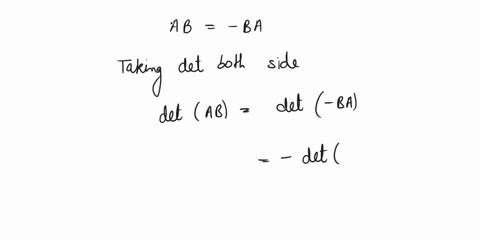 AB = -BA
Taking det both side
det (AB) = det (-BA)
= - det (